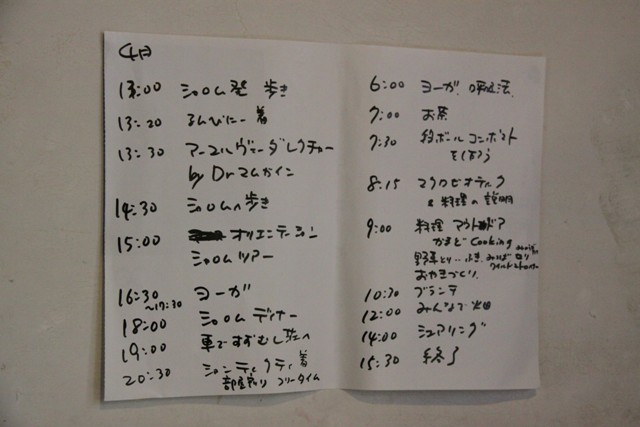 4月
13:00 シャロム発 歩き
13:20 るんびにー着
13:30 アーユルヴェーダレクチャー
by Dr
14:30 シャロムへ歩き
15:00 オリエンテーション
シャロムツアー
16:30
〜17:30 ヨーガ
18:00 シャロム ディナー
19:00 車ですずむし荘へ
20:30 シャンティクティ着
部屋割り フリータイム
6:00 ヨーガ、呼吸法
7:00 お茶
7:30 段ボールコンポスト
8:15 マクロビオティック
& 料理の説明
9:00 料理 アウトドア
かまど Cooking
野草とり
おやきづくり
10:30 ブランチ
12:00 みんなで畑
14:00 シェアリング
15:30 終了